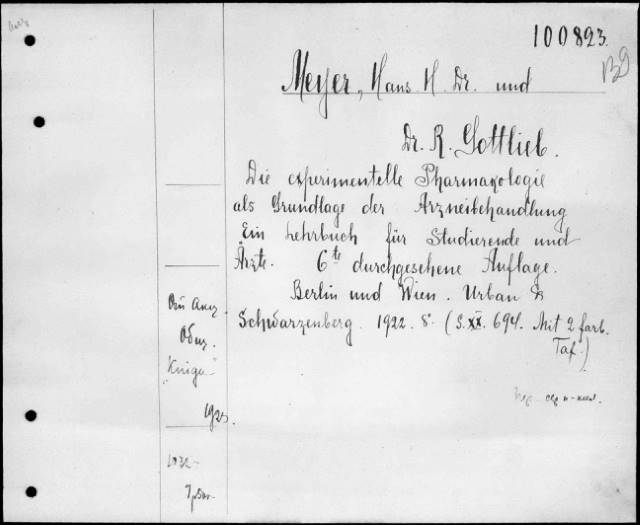 100823.
Meyer, Hans H. Dr. und
Dr. R. Gottlieb.
Die experimentelle Pharmakologie
als Grundlage der Arzneibehandlung
Ein Lehrbuch für Studierende und
Ärzte. 6te durchgesehene Auflage.
Berlin und Wien. Urban &
Schwarzenberg. 1922. 8. (S. XII. 694. Mit 2 farb.
Taf.)
"Kniga"
1923.
1932